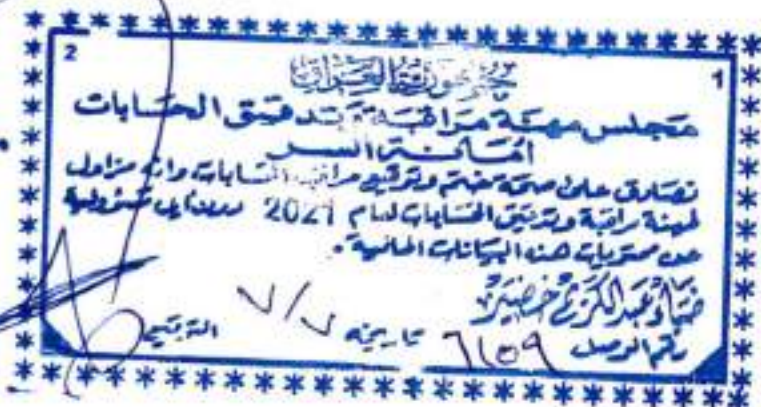 2
1
جمهورية العراق
مجلس مهنة مراقبة وتدقيق الحسابات
أمانة السر
نصادق على صحة ختم وتوقيع مراقب الحسابات وانه مزاول
لمهنة مراقبة وتدقيق الحسابات لعام 2021 دون اية مسؤولية
عن محتويات هذه البيانات المالية.
ضياء عبدالكريم خضير
رقم الوصل ٦١٥٩ تاريخه ٧/٧ التوقيع